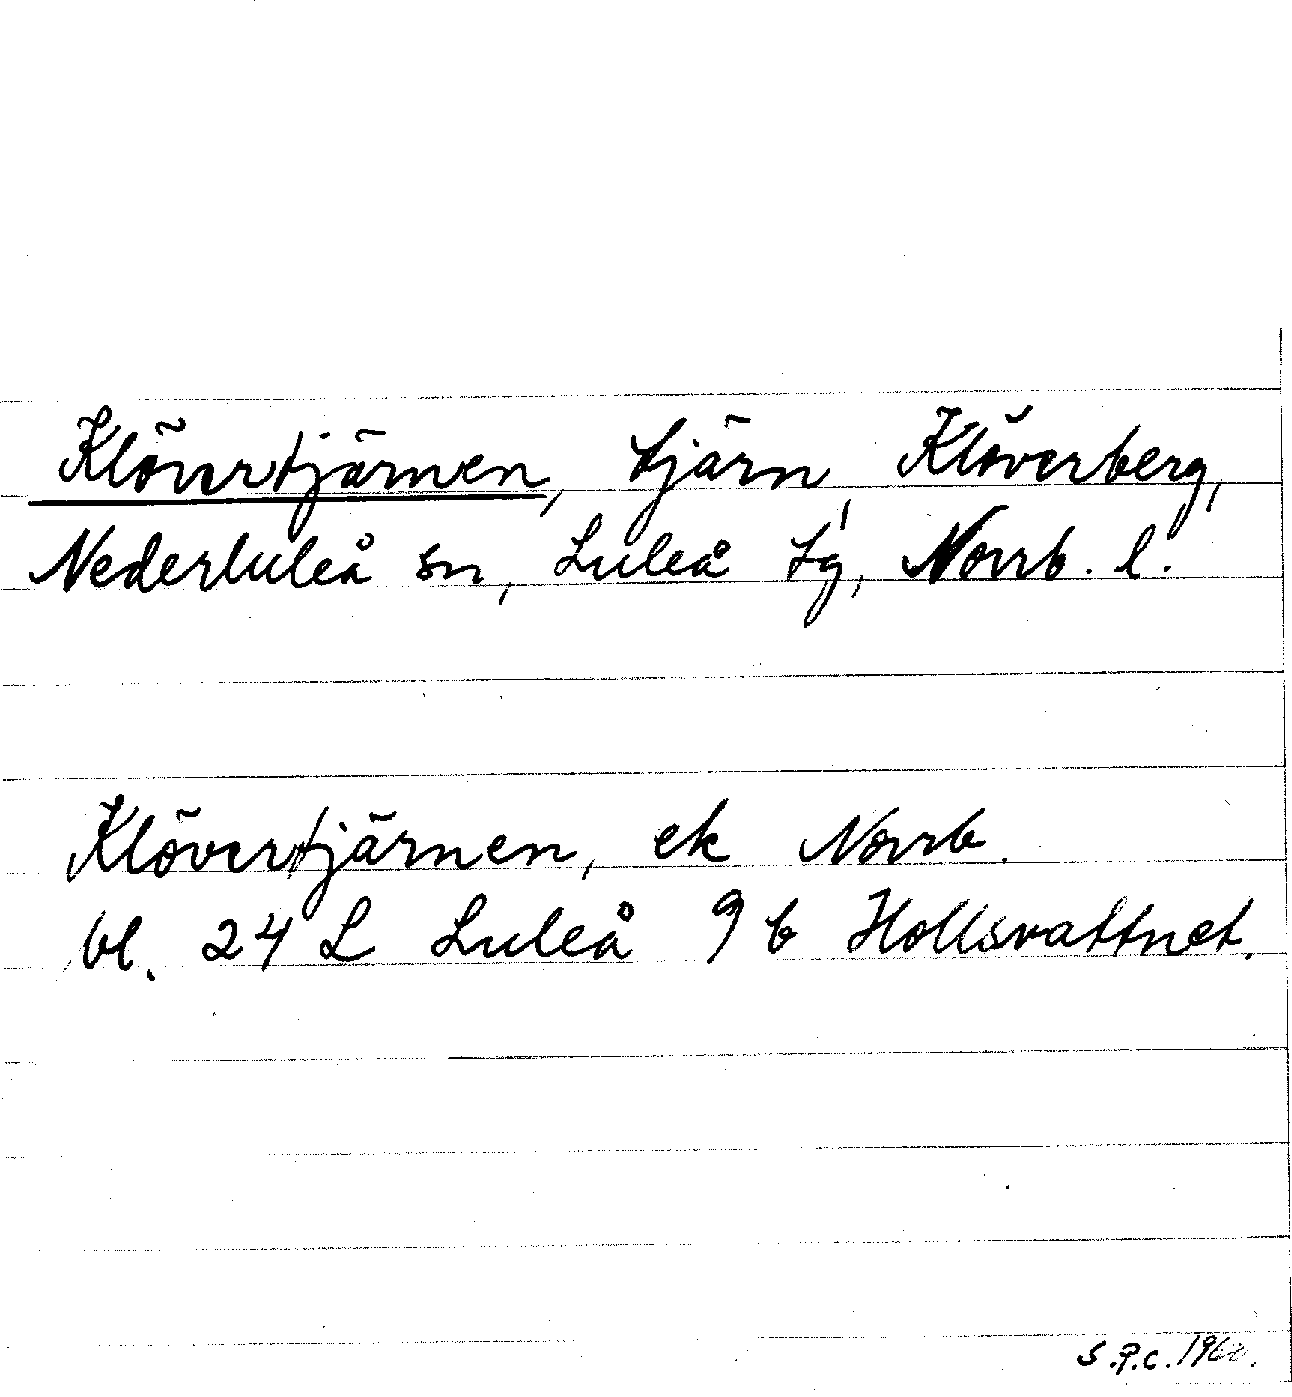 Klövertjärnen, tjärn, Klöverberg,
Nederluleå sn, Luleå tg, Norrb. l.
Klövertjärnen, ek Norrb.
bl. 24 L Luleå 9 b Hollsvattnet.
S.P.C.